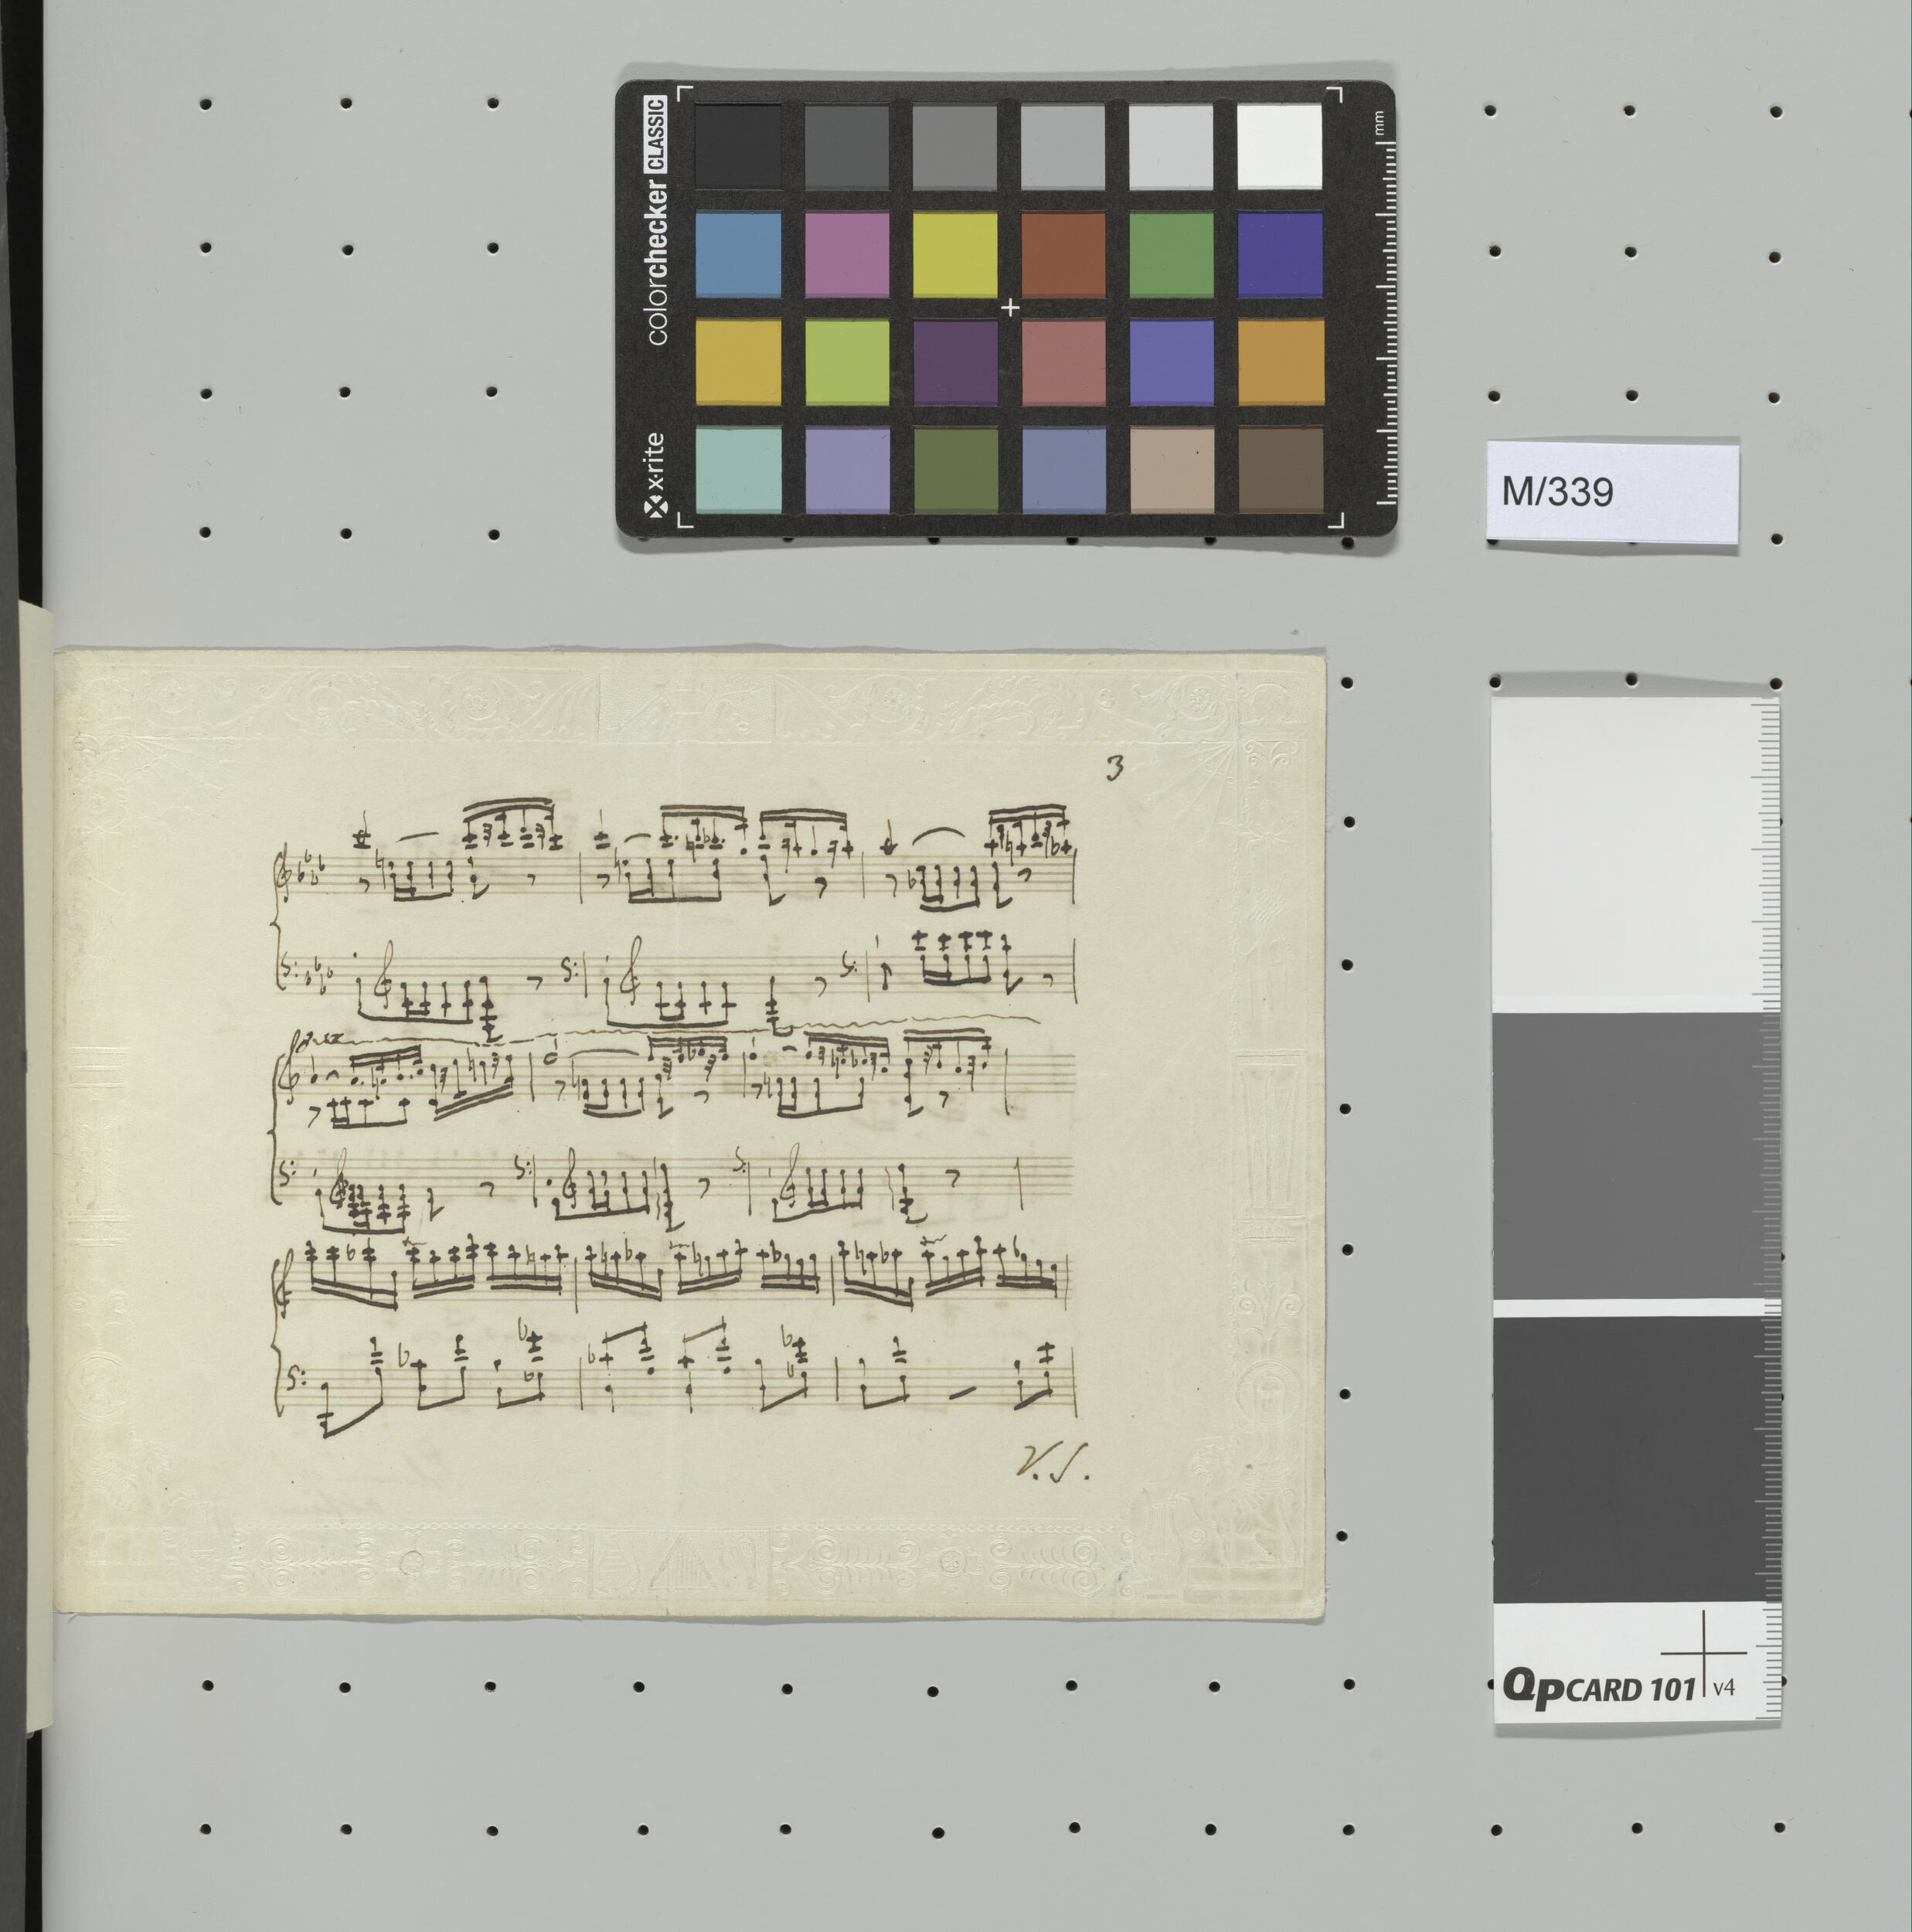 colorchecker CLASSIC
x·rite
mm
M/339
3
8va
V.S.
QPCARD 101 v4